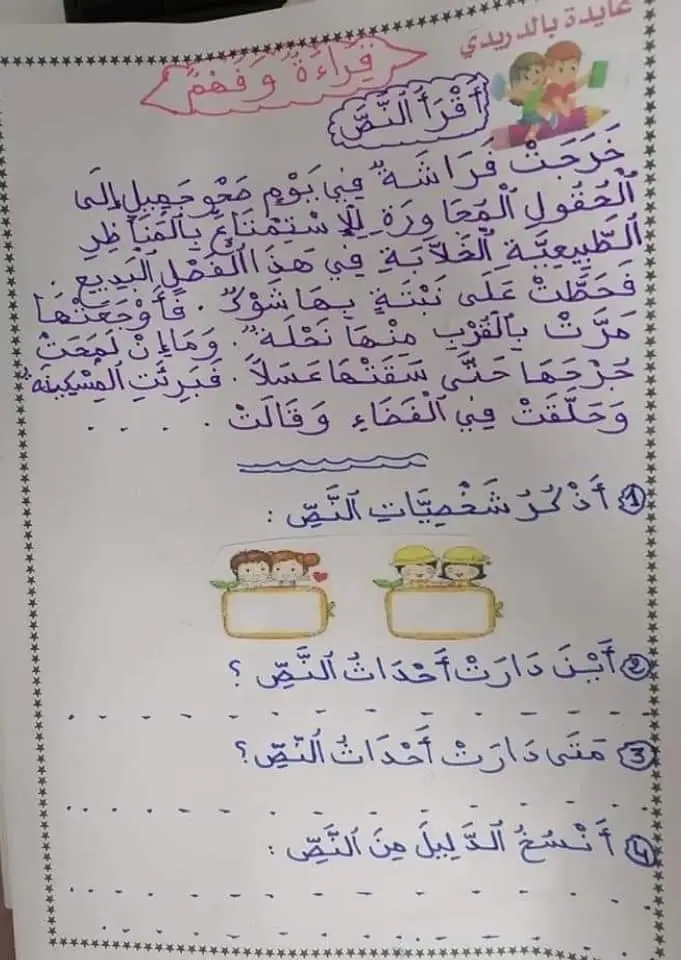 عايدة بالدريدي
قِرَاءَةٌ وَفَهْمٌ
أَقْرَأُ النَّصَّ
خَرَجَتْ فَرَاشَةٌ فِي يَوْمٍ صَحْوٍ جَمِيلٍ إِلَى
الْحُقُولِ الْمُجَاوِرَةِ لِلْإِسْتِمْتَاعِ بِالْمَنَاظِرِ
الطَّبِيعِيَّةِ الْخَلَّابَةِ فِي هَذَا الْفَصْلِ الْبَدِيعِ .
فَحَطَّتْ عَلَى نَبْتَةٍ بِهَا شَوْكٌ . فَأَوْجَعَتْهَا
مَرَّتْ بِالْقُرْبِ مِنْهَا نَحْلَةٌ . وَمَا إِنْ لَمَحَتْ
جُرْحَهَا حَتَّى سَقَتْهَا عَسَلًا . فَبَرِئَتِ الْمِسْكِينَةُ
وَحَلَّقَتْ فِي الْفَضَاءِ وَقَالَتْ . . . . .
1 أَذْكُرُ شَخْصِيَّاتِ النَّصِّ :
2 أَيْنَ دَارَتْ أَحْدَاثُ النَّصِّ ؟
3 مَتَى دَارَتْ أَحْدَاثُ النَّصِّ ؟
4 أَنْسَخُ الدَّلِيلَ مِنَ النَّصِّ :